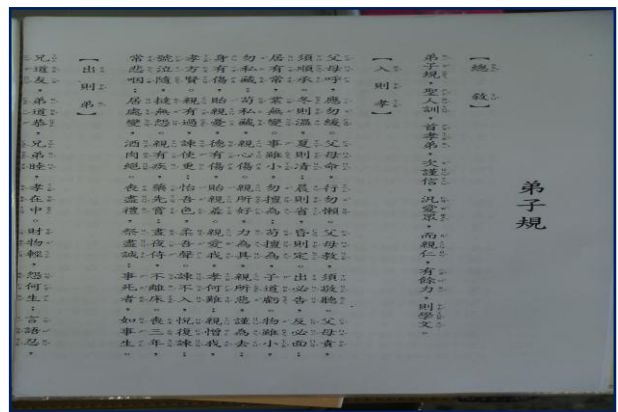 弟子規
【總 敘】
弟子規，聖人訓，首孝弟，次謹信，汎愛眾，而親仁，有餘力，則學文。
【入 則 孝】
父母呼，應勿緩，父母命，行勿懶，父母教，須敬聽，父母責，
須順承，冬則溫，夏則凊，晨則省，昏則定，出必告，反必面，
居有常，業無變，事雖小，勿擅為，苟擅為，子道虧，物雖小，
勿私藏，苟私藏，親心傷，親所好，力為具，親所惡，謹為去，
身有傷，貽親憂，德有傷，貽親羞，親愛我，孝何難，親憎我，
孝方賢，親有過，諫使更，怡吾色，柔吾聲，諫不入，悅復諫，
號泣隨，撻無怨，親有疾，藥先嘗，晝夜侍，不離床，喪三年，
常悲咽，居處變，酒肉絕，喪盡禮，祭盡誠，事死者，如事生。
【出 則 弟】
兄道友，弟道恭，兄弟睦，孝在中，財物輕，怨何生，言語忍，